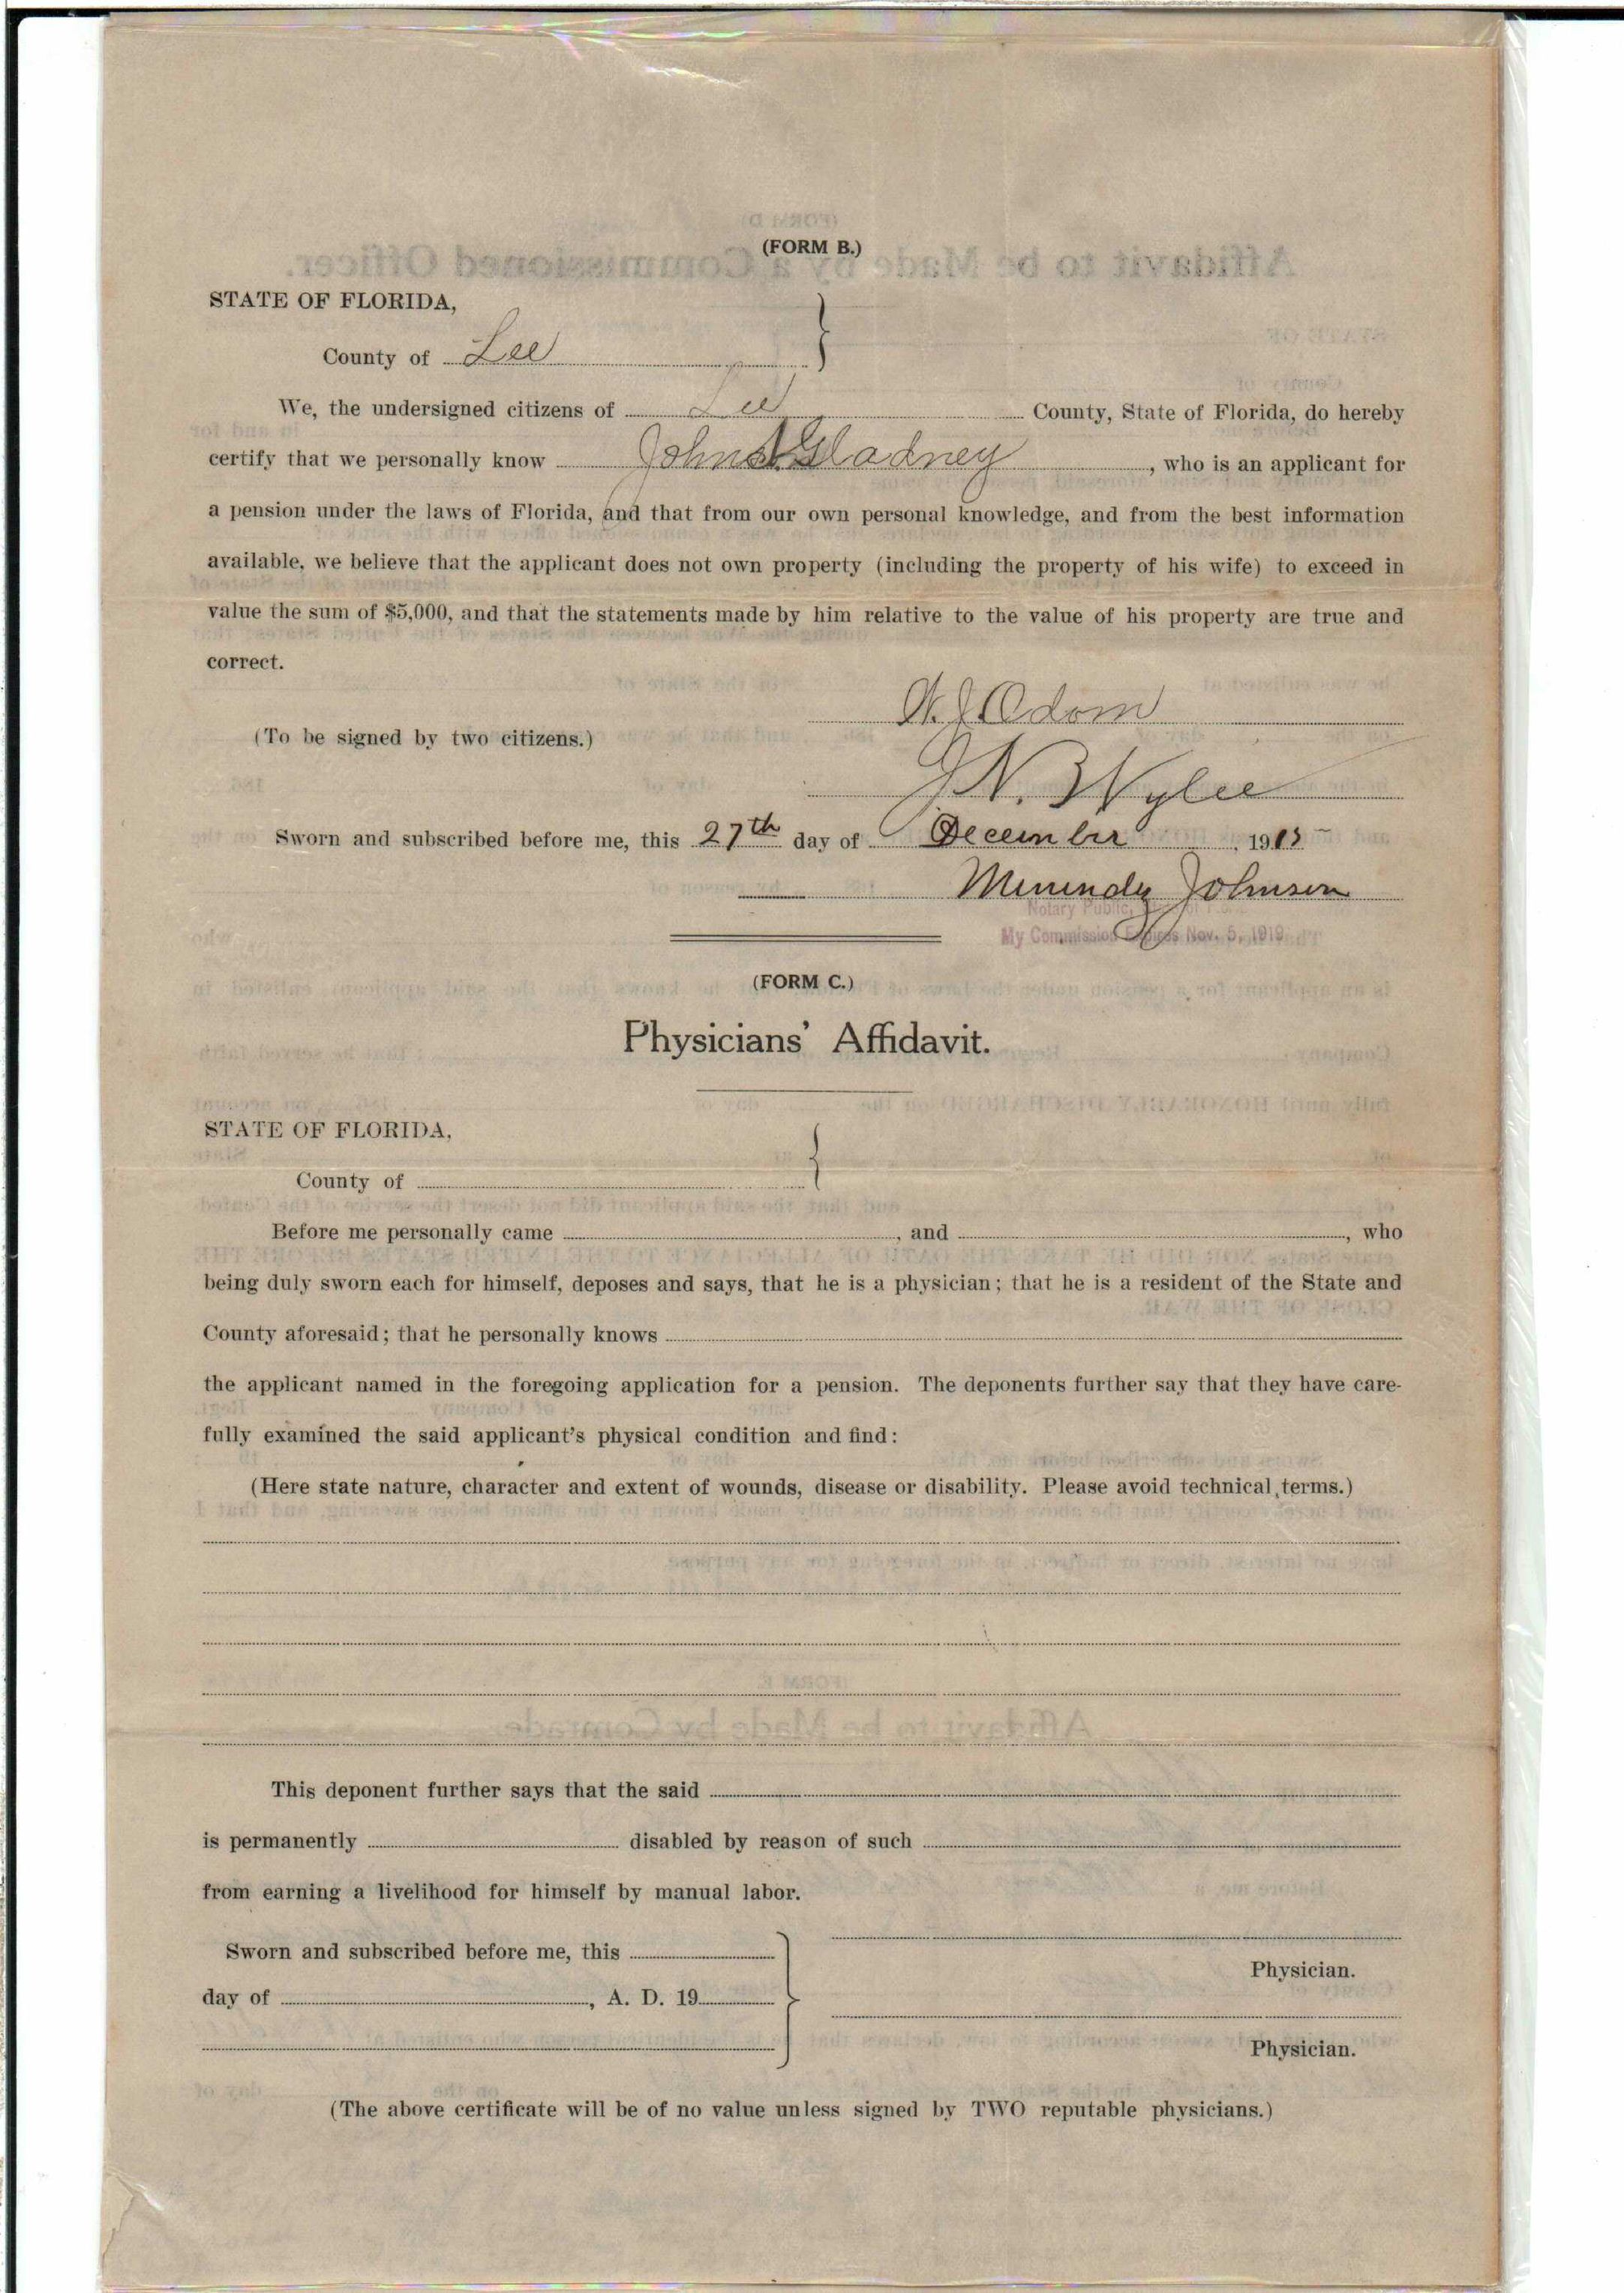 (FORM B.)
STATE OF FLORIDA,
County of Lee
We, the undersigned citizens of Lee County, State of Florida, do hereby
certify that we personally know John Gladney, who is an applicant for
a pension under the laws of Florida, and that from our own personal knowledge, and from the best information
available, we believe that the applicant does not own property (including the property of his wife) to exceed in
value the sum of $5,000, and that the statements made by him relative to the value of his property are true and
correct.
Odom
(To be signed by two citizens.)
J N. Wylie
Sworn and subscribed before me, this 27th day of December, 1915
Johnson
Notary Public,
My Commission Expires Nov. 5, 1919
(FORM C.)
Physicians' Affidavit.
STATE OF FLORIDA,
County of
Before me personally came , and , who
being duly sworn each for himself, deposes and says, that he is a physician; that he is a resident of the State and
County aforesaid; that he personally knows
the applicant named in the foregoing application for a pension. The deponents further say that they have care-
fully examined the said applicant's physical condition and find:
(Here state nature, character and extent of wounds, disease or disability. Please avoid technical terms.)
This deponent further says that the said
is permanently disabled by reason of such
from earning a livelihood for himself by manual labor.
Sworn and subscribed before me, this
Physician.
day of , A. D. 19
Physician.
(The above certificate will be of no value unless signed by TWO reputable physicians.)